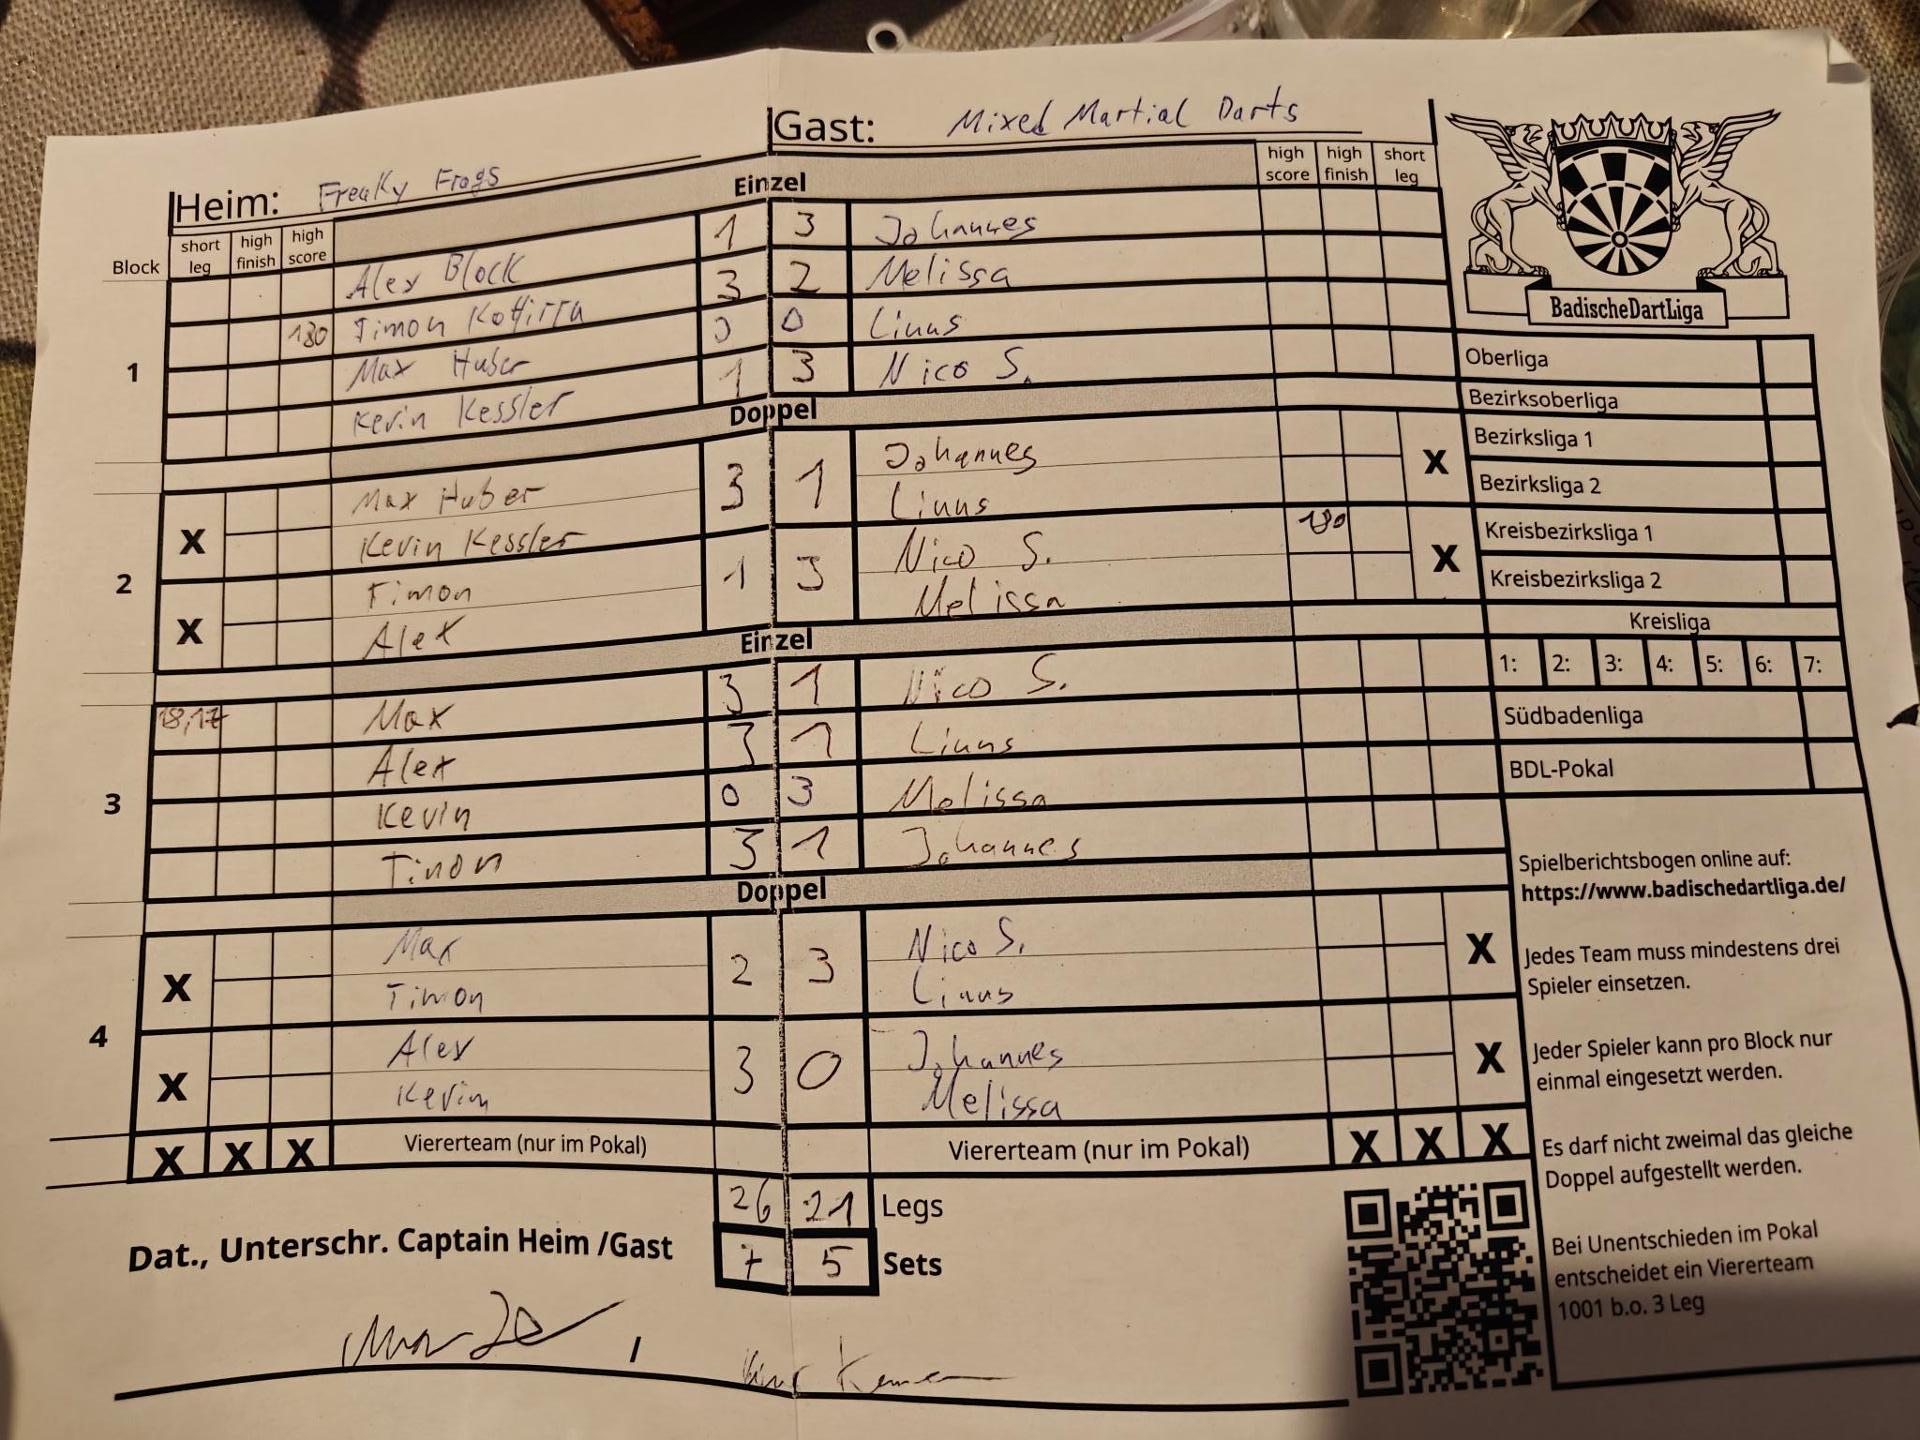 Heim: Freaky Frogs
Gast: Mixed Martial Darts
Einzel
high score high finish short leg
Block short leg high finish high score
1
Alex Block 1 3 Johannes
180 Timon 3 2 Melissa
Max Huber 0 Linus
Kevin Kessler 1 3 Nico S.
Doppel
2
X Max Huber 3 1 Johannes X
Kevin Kessler Linus
X Timon 1 3 Nico S. 180 X
Alex Melissa
Einzel
3
18,17 Max 3 1 Nico S.
Alex 3 1 Linus
Kevin 0 3 Melissa
Timon 3 1 Johannes
Doppel
4
X Max 2 3 Nico S. X
Timon Linus
X Alex 3 0 Johannes X
Kevin Melissa
X X X Viererteam (nur im Pokal) Viererteam (nur im Pokal) X X X
26 21 Legs
7 5 Sets
Dat., Unterschr. Captain Heim /Gast
/
BadischeDartLiga
Oberliga
Bezirksoberliga
Bezirksliga 1
Bezirksliga 2
Kreisbezirksliga 1
Kreisbezirksliga 2
Kreisliga
1: 2: 3: 4: 5: 6: 7:
Südbadenliga
BDL-Pokal
Spielberichtsbogen online auf:
https://www.badischedartliga.de/
Jedes Team muss mindestens drei
Spieler einsetzen.
Jeder Spieler kann pro Block nur
einmal eingesetzt werden.
Es darf nicht zweimal das gleiche
Doppel aufgestellt werden.
Bei Unentschieden im Pokal
entscheidet ein Viererteam
1001 b.o. 3 Leg